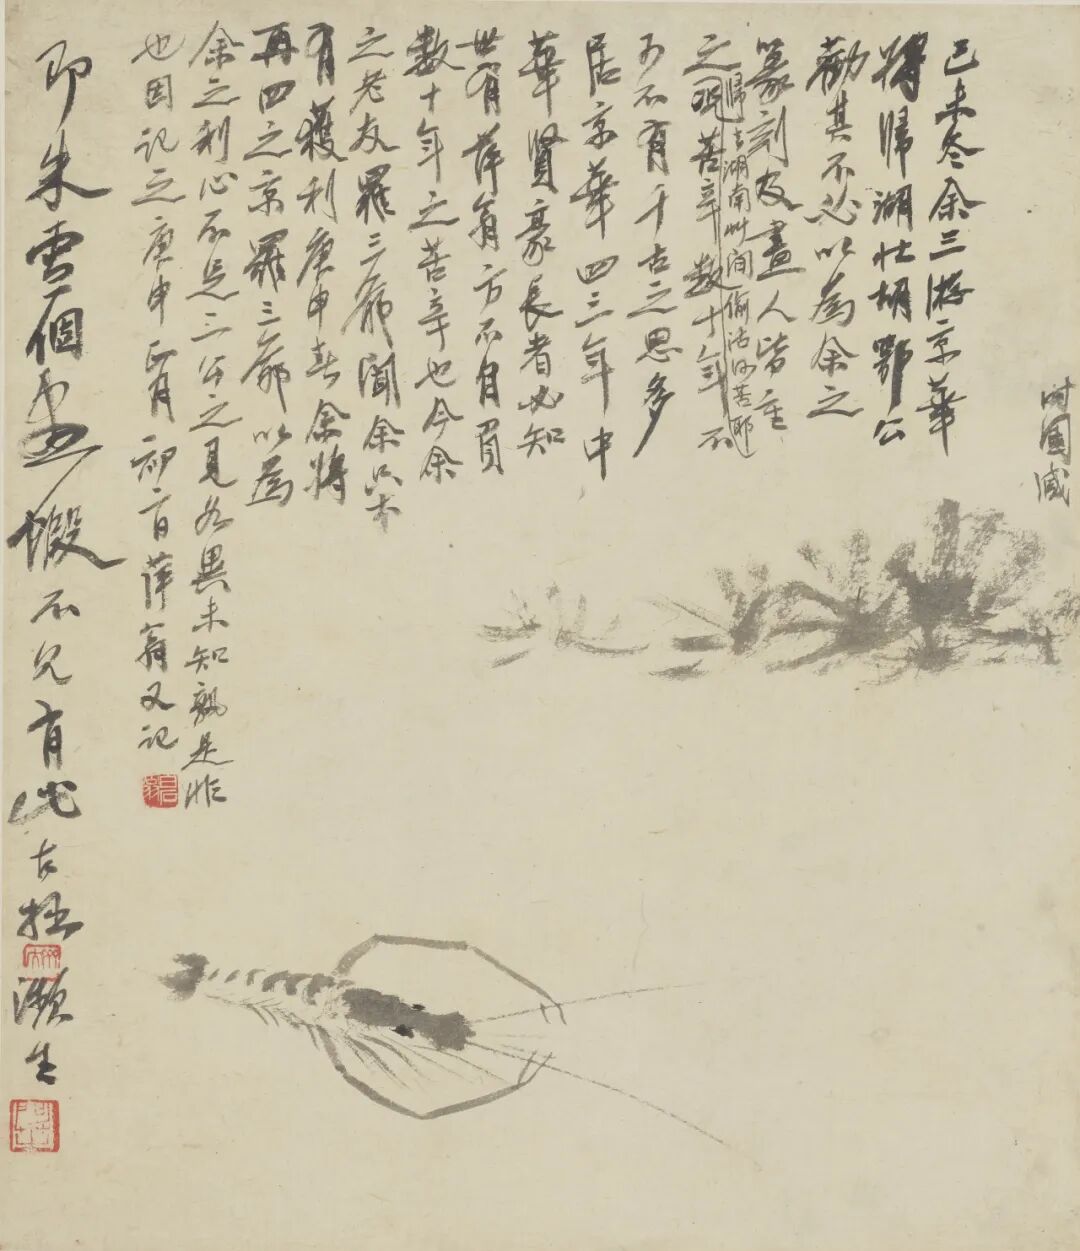 己未冬余三游京華
將歸湖壯胡鄂公
勸其不必以爲余之
篆刻及畫人皆重
之況苦辛數十年不
歸去湖南艸間偷活何苦耶
可不有千古之思多
居京華四三年中
華賢豪長者必知
世有萍翁方不自負
數十年之苦辛也今余
之老友羅三爺聞余
有獲利庚申春余將
再四之京羅三爺以爲
余之利心不足二公之見各異未知孰是非
也因記之庚申正月初日萍翁又記
即朱雪個畫蝦不見有此古拙瀕生